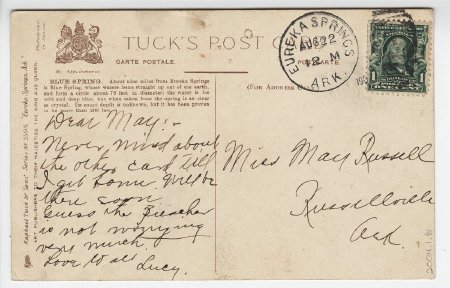 TUCK'S POST C
CARTE POSTALE.
POSTKARTE.
By Appointment
BLUE SPRING. About nine miles from Eureka Springs
is Blue Spring, whose waters issue straight up out of the earth,
and form a circle about 70 feet in diameter; the water is ice
cold and deep blue, but when taken from the spring is as clear
as crystal. Its exact depth is unknown, but it has been proven
to be more than 200 feet.
(For Address O
EUREKA SPRINGS
AUG 22
12 M
ARK.
1
Dear May:-
Never mind about
the other card till
I get home. Will be
there soon.
Guess the Preacher
is not worrying
very much.
Love to all
Lucy.
Miss May Russell
Russellville
Ark.
ART PUBLISHERS TO THEIR MAJESTIES THE KING AND QUEEN.